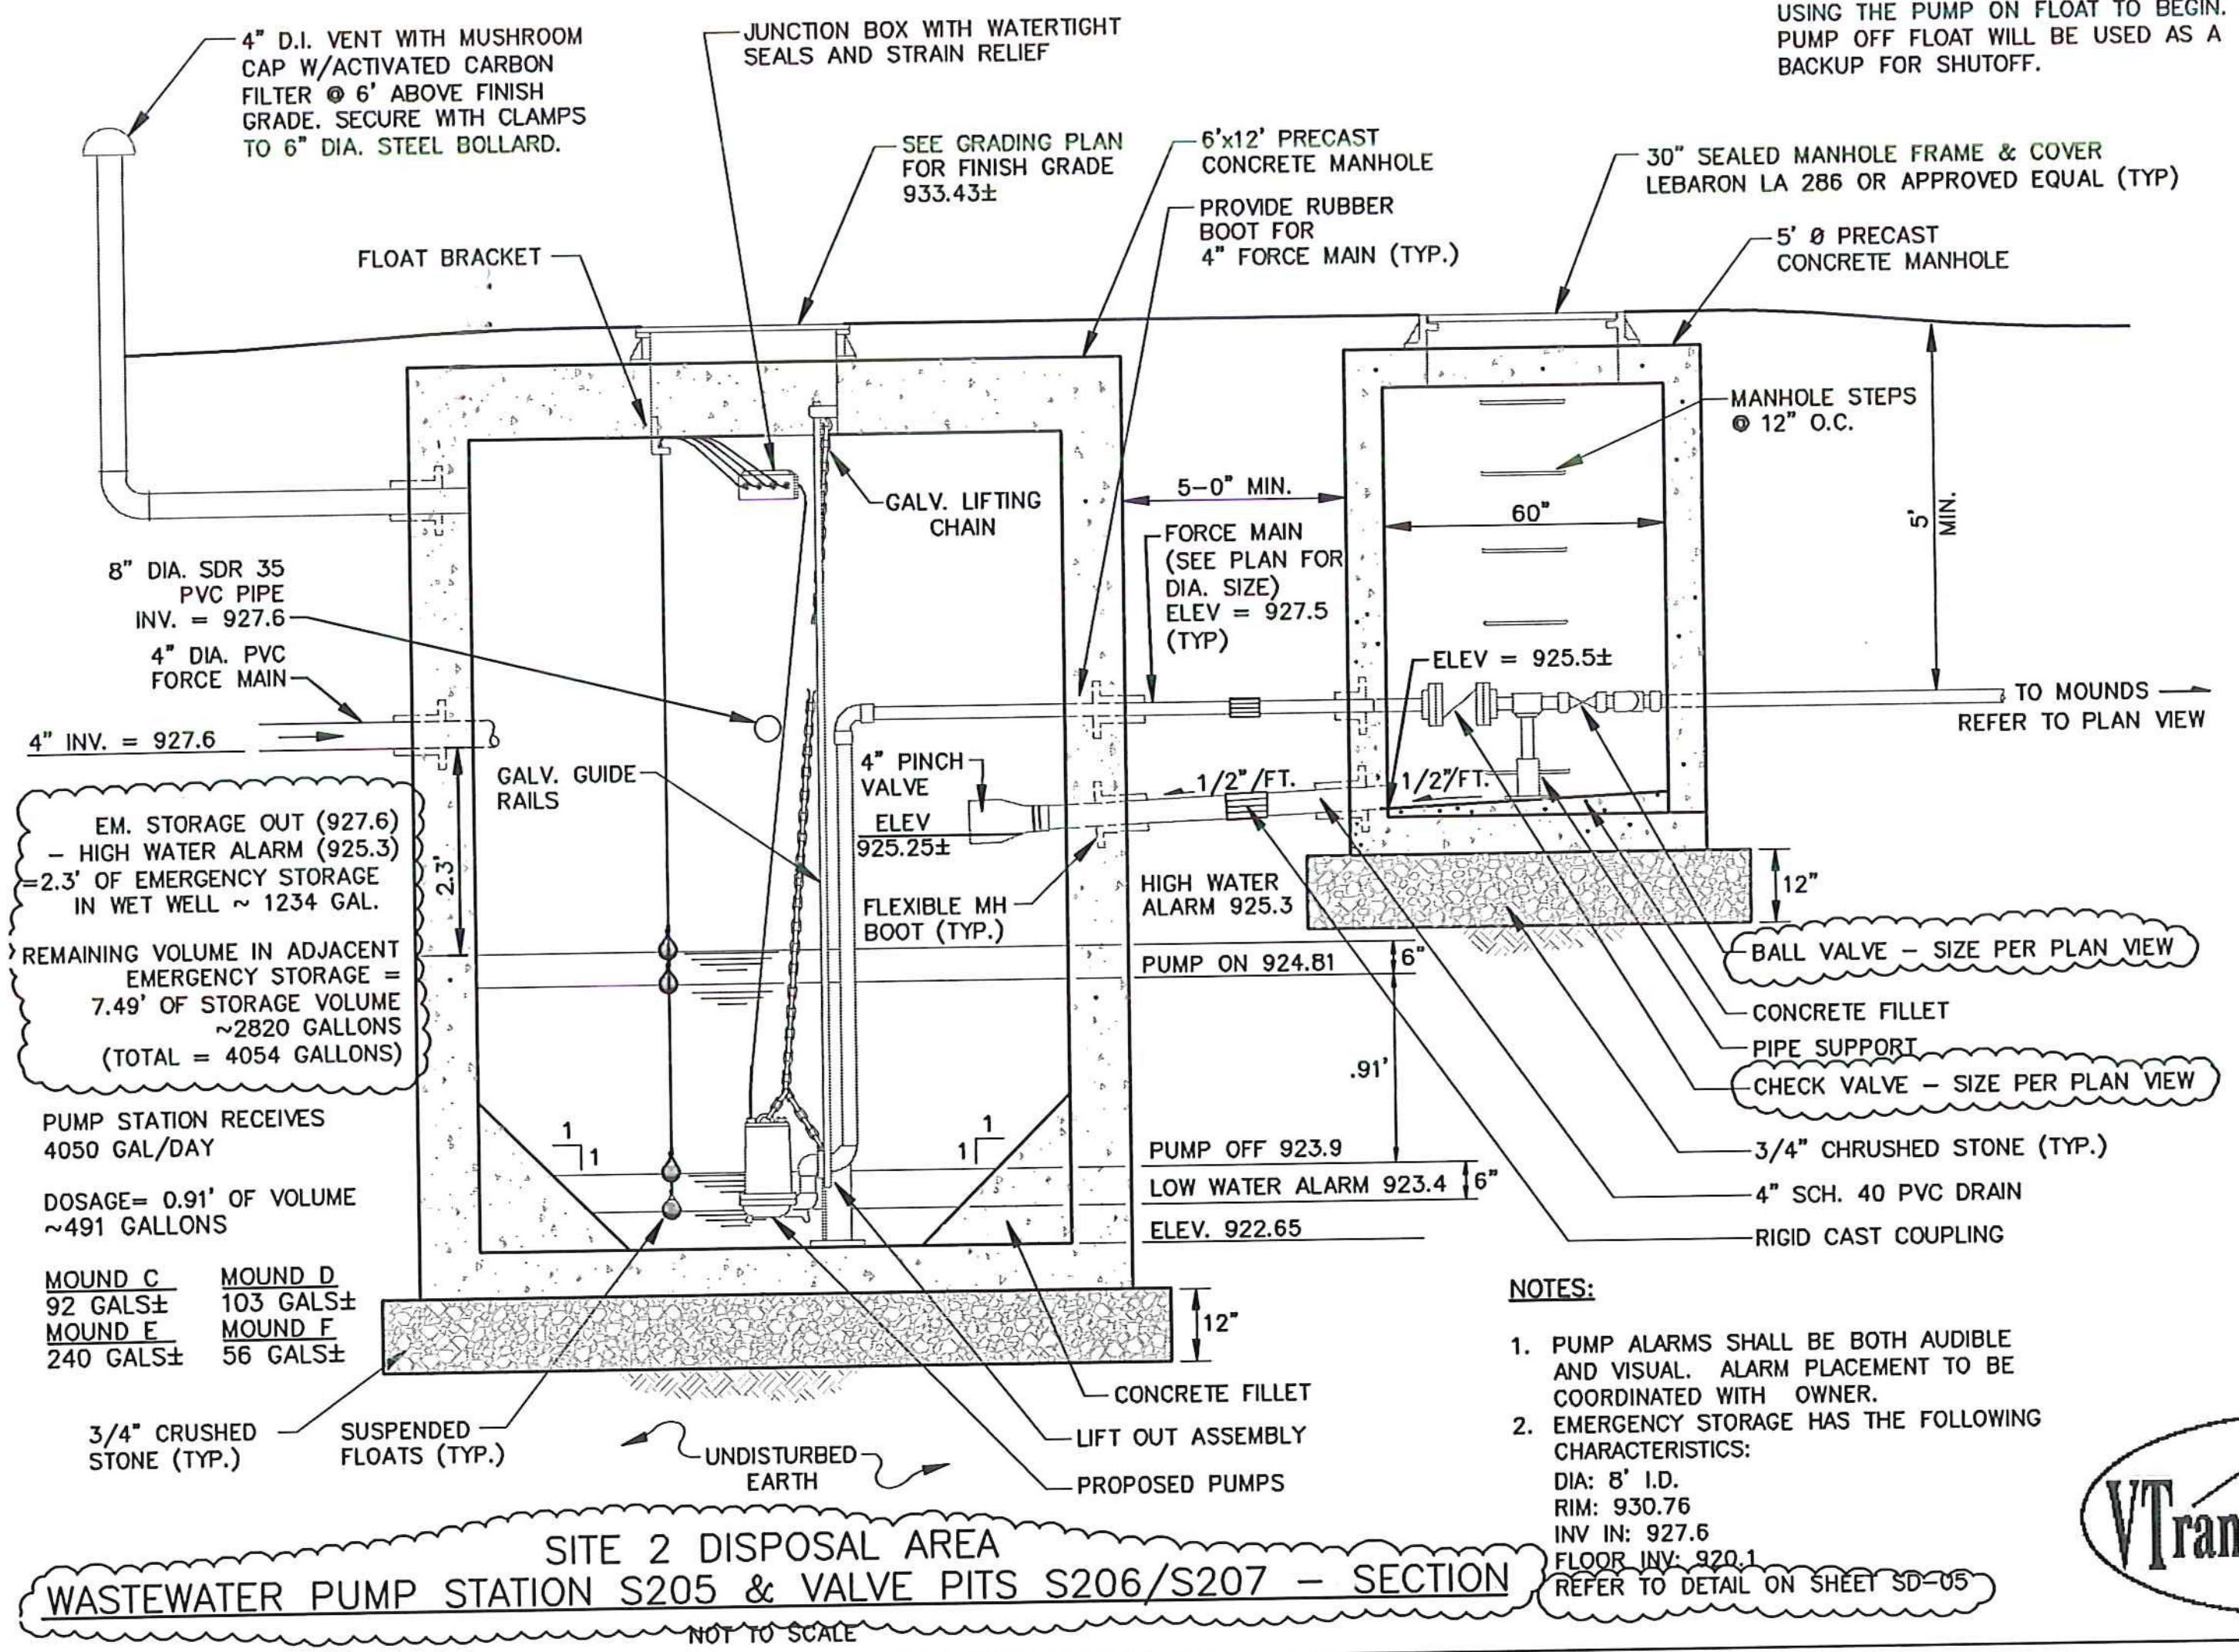 4" D.I. VENT WITH MUSHROOM
CAP W/ACTIVATED CARBON
FILTER @ 6' ABOVE FINISH
GRADE. SECURE WITH CLAMPS
TO 6" DIA. STEEL BOLLARD.
JUNCTION BOX WITH WATERTIGHT
SEALS AND STRAIN RELIEF
USING THE PUMP ON FLOAT TO BEGIN.
PUMP OFF FLOAT WILL BE USED AS A
BACKUP FOR SHUTOFF.
SEE GRADING PLAN
FOR FINISH GRADE
933.43±
6'x12' PRECAST
CONCRETE MANHOLE
PROVIDE RUBBER
BOOT FOR
4" FORCE MAIN (TYP.)
30" SEALED MANHOLE FRAME & COVER
LEBARON LA 286 OR APPROVED EQUAL (TYP)
5' Ø PRECAST
CONCRETE MANHOLE
FLOAT BRACKET
MANHOLE STEPS
@ 12" O.C.
GALV. LIFTING
CHAIN
5-0" MIN.
60"
5'
MIN.
FORCE MAIN
(SEE PLAN FOR
DIA. SIZE)
ELEV = 927.5
(TYP)
8" DIA. SDR 35
PVC PIPE
INV. = 927.6
4" DIA. PVC
FORCE MAIN
4" INV. = 927.6
ELEV = 925.5±
TO MOUNDS
REFER TO PLAN VIEW
GALV. GUIDE
RAILS
4" PINCH
VALVE
ELEV
925.25±
1/2"/FT.
1/2"/FT.
EM. STORAGE OUT (927.6)
- HIGH WATER ALARM (925.3)
=2.3' OF EMERGENCY STORAGE
IN WET WELL ~ 1234 GAL.
2.3'
REMAINING VOLUME IN ADJACENT
EMERGENCY STORAGE =
7.49' OF STORAGE VOLUME
~2820 GALLONS
(TOTAL = 4054 GALLONS)
FLEXIBLE MH
BOOT (TYP.)
HIGH WATER
ALARM 925.3
12"
PUMP ON 924.81
6"
BALL VALVE - SIZE PER PLAN VIEW
CONCRETE FILLET
PIPE SUPPORT
CHECK VALVE - SIZE PER PLAN VIEW
.91'
PUMP STATION RECEIVES
4050 GAL/DAY
1
1
1
1
PUMP OFF 923.9
LOW WATER ALARM 923.4
6"
ELEV. 922.65
3/4" CHRUSHED STONE (TYP.)
4" SCH. 40 PVC DRAIN
RIGID CAST COUPLING
DOSAGE= 0.91' OF VOLUME
~491 GALLONS
MOUND C MOUND D
92 GALS± 103 GALS±
MOUND E MOUND F
240 GALS± 56 GALS±
12"
3/4" CRUSHED
STONE (TYP.)
SUSPENDED
FLOATS (TYP.)
UNDISTURBED
EARTH
CONCRETE FILLET
LIFT OUT ASSEMBLY
PROPOSED PUMPS
NOTES:
1. PUMP ALARMS SHALL BE BOTH AUDIBLE
AND VISUAL. ALARM PLACEMENT TO BE
COORDINATED WITH OWNER.
2. EMERGENCY STORAGE HAS THE FOLLOWING
CHARACTERISTICS:
DIA: 8' I.D.
RIM: 930.76
INV IN: 927.6
FLOOR INV: 920.1
REFER TO DETAIL ON SHEET SD-05
SITE 2 DISPOSAL AREA
WASTEWATER PUMP STATION S205 & VALVE PITS S206/S207 - SECTION
NOT TO SCALE
VTran